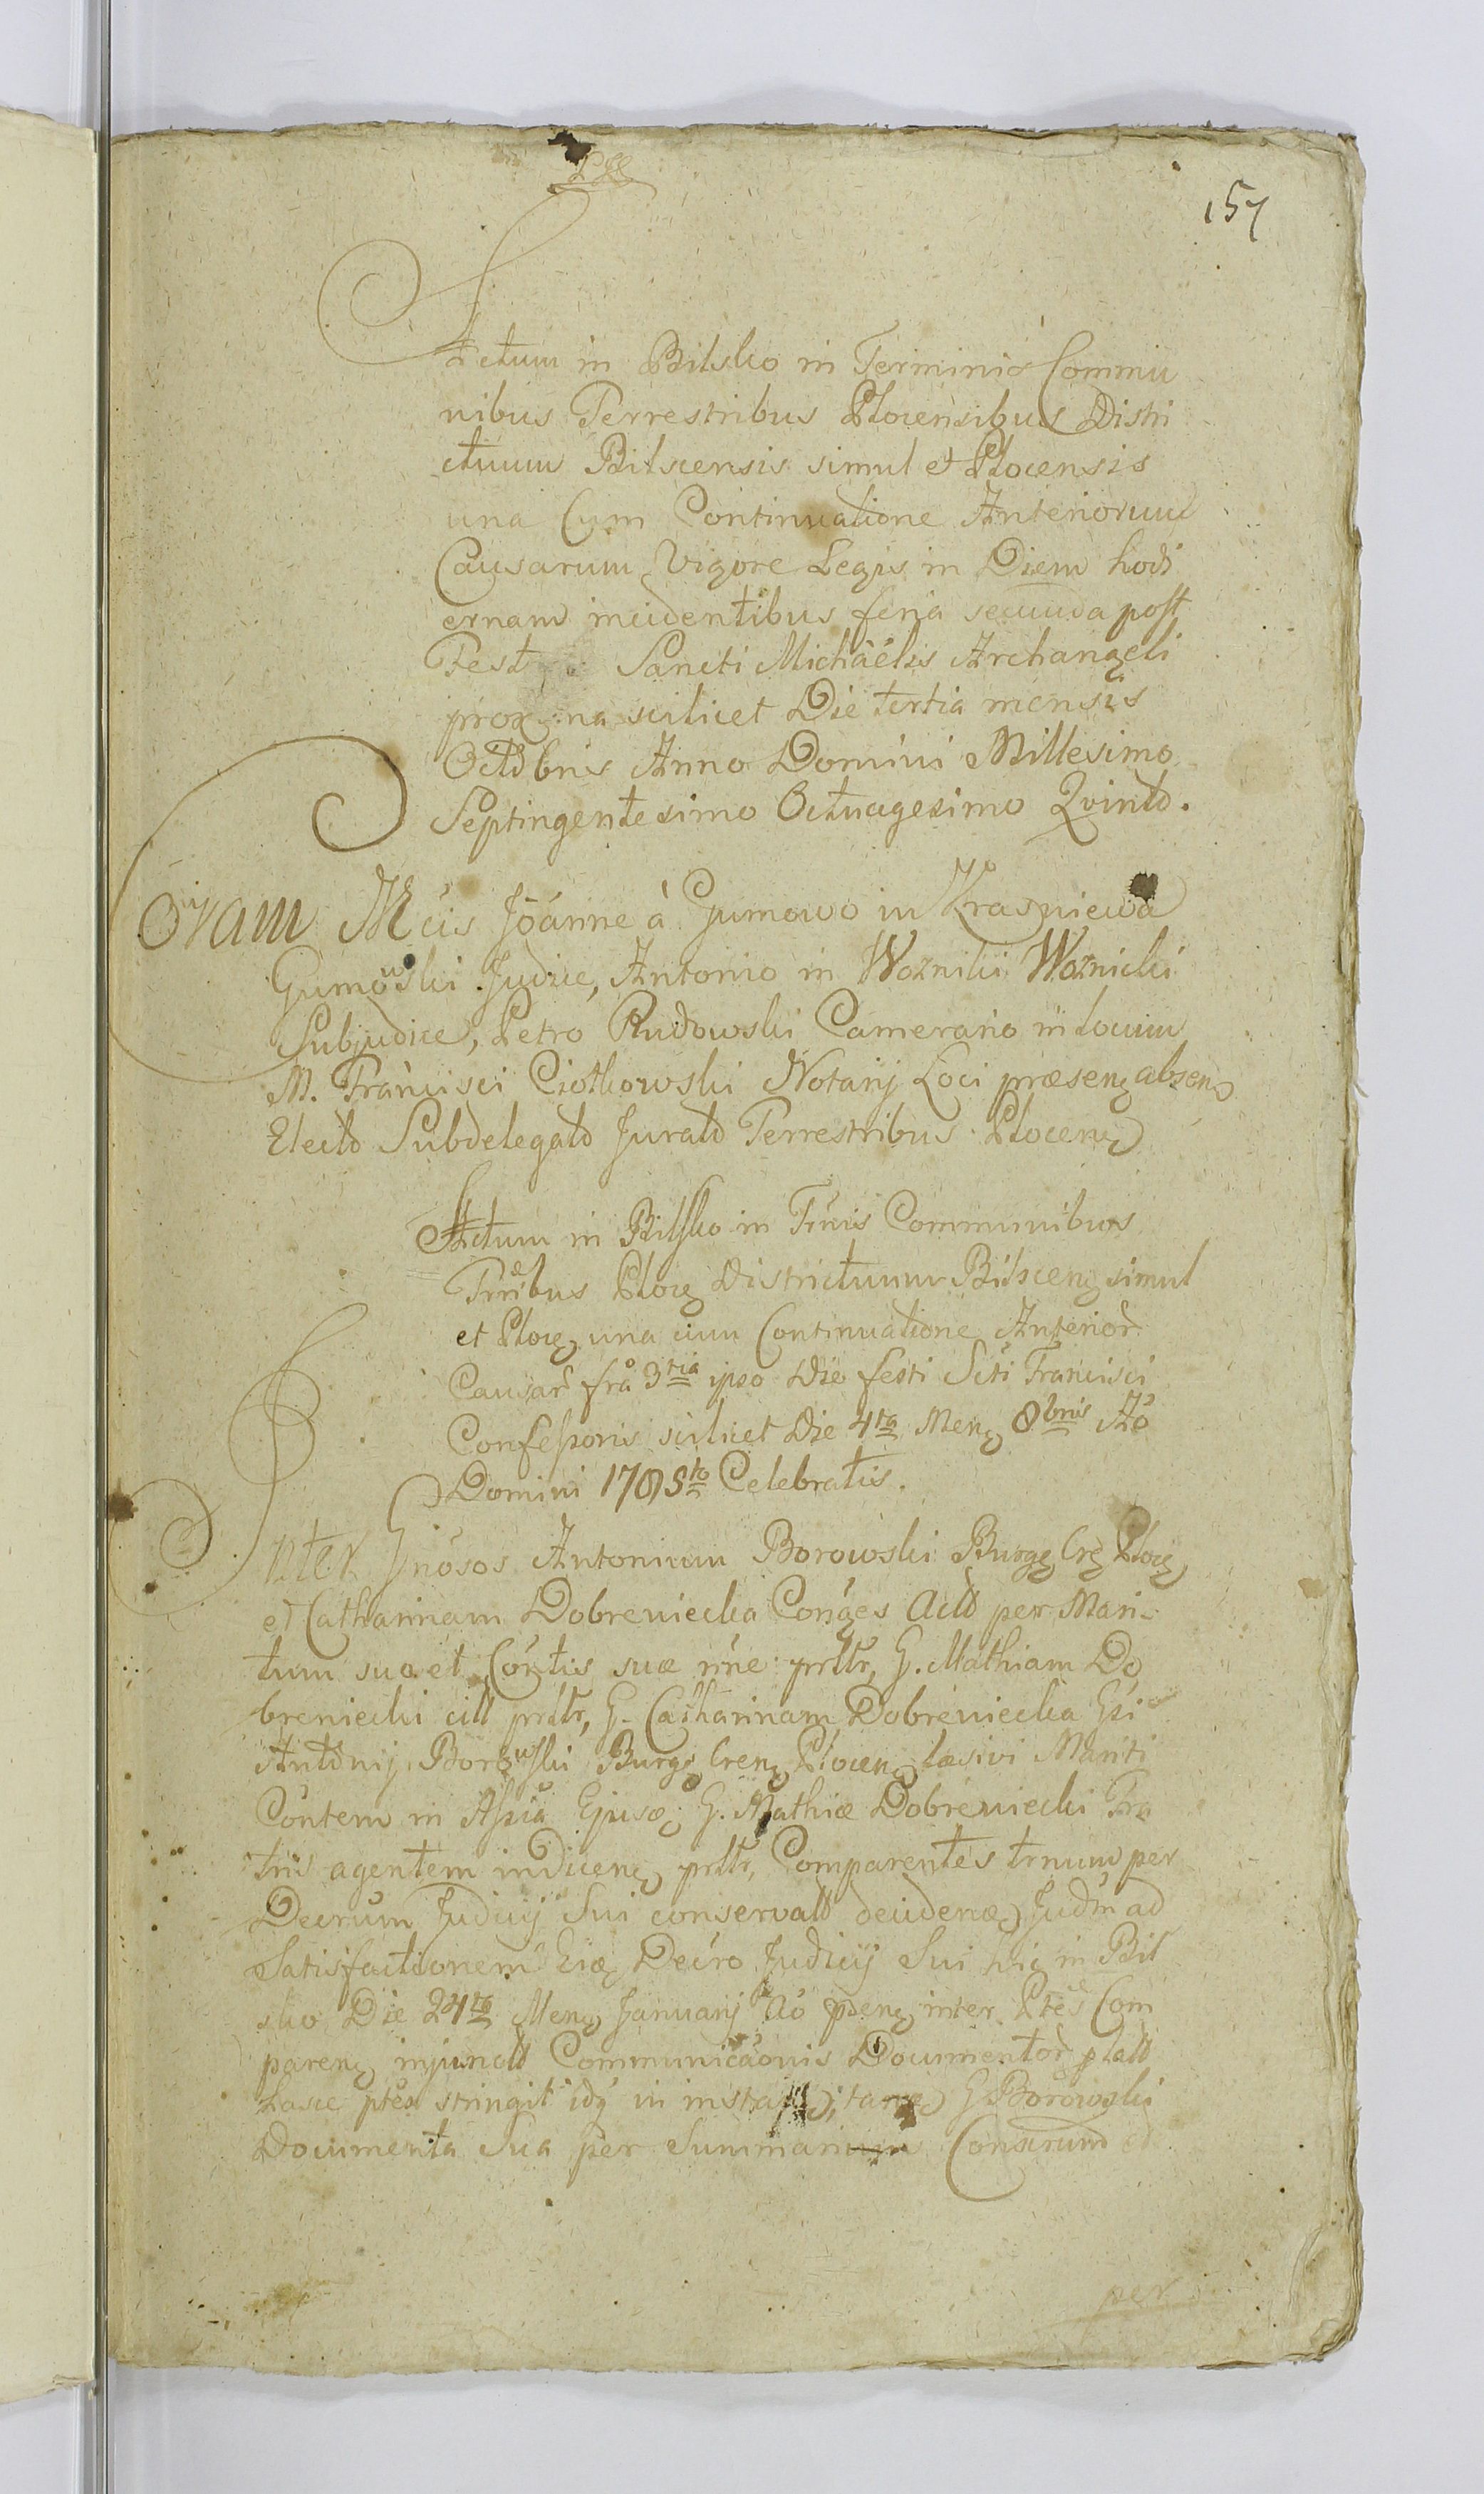 157
Actum in Bilsko in Terminis Commu
nibus Terrestribus Plocensibus Distri
ctuum Bilscensis simul et Plocensis
una Cum Continuatione Anteriorum
Causarum Vigore Legis in Diem hodi
ernam incidentibus feria secunda post
Fest Sancti Michaëlis Archangeli
proxima scilicet Die tertia mensis
Octobris Anno Domini Millesimo
Septingentesimo Octuagesimo Qvinto.
Coram MGcis Joanne à Gumowo in Krasniewo
Gumowski Judice, Antonio in Woźniki Woźnicki
Subjudice, Petro Rudowski Camerario in locum
M. Francisci Ciołkowski Notarij Loci præsenq absenq
Electo Subdelegato Jurato Terrestribus Plocenq
Actum in Bilsko in Trnis Communibus
Trribus Plocq Districtuum Bilscenq simul
et Plocq una cum Continuatione Anterior
Causar fra 3tia ipso Die festi Scti Francisci
Confessoris scilicet Die 4ta Menq 8bris Ao
Domini 1785to Celebratis.
Inter Gnosos Antonium Borowski Burgq Crq Plocq
et Catharinam Dobrzeniecka Conges Acto per Mari
tum suo et Contis suæ nne prltr, G. Mathiam Do
breniecki citt prltr, G. Catharinam Dobreniecka Gsi
Antonij Borowski Burgq Crenq Plocenq læsivi Mariti
Contem in Assia Ejusq G. Mathiæ Dobreniecki Fra
tris agentem indicenq prltr, Comparentes trnum per
Decrum Judicij Sui conservatt decidenq Judm ad
Satisfactionem Decro Judicij Sui hic in Bil
sko Die 24ta Menq Januarij Ao psenq inter Ptes Com
parenq injunctt Communicaonis Documentor
ptes stringit idq in G Borowski
Documenta Sua per Summarium Conscrum et
per